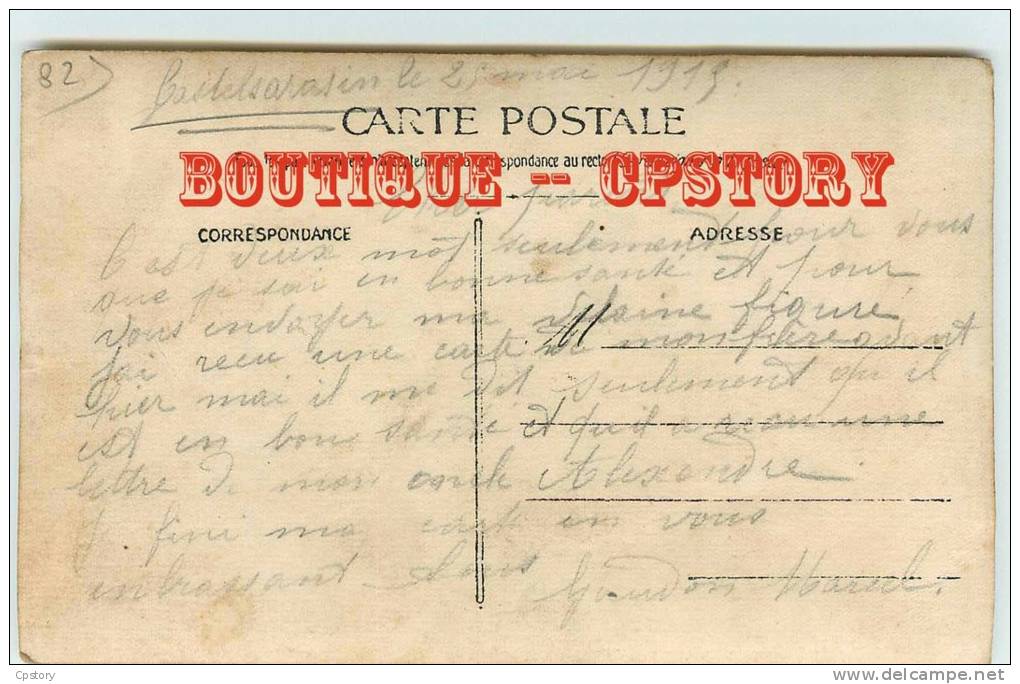 82)
Castelsarasin le 25 mai 1915.
CARTE POSTALE
BOUTIQUE -- CPSTORY
CORRESPONDANCE
ADRESSE
C est deux mot seulement pour vous
que je sui en bonne santé et pour
vous envoyer ma vilaine figure
jai recu une carte de mon frere avant
hier mai il me dit seulement qu il
est en bone santé et quil a recu une
lettre de mon oncle Alexandre
Je fini ma carte en vous
enbrassant tous
Marcel.
Cpstory
www.delcampe.net